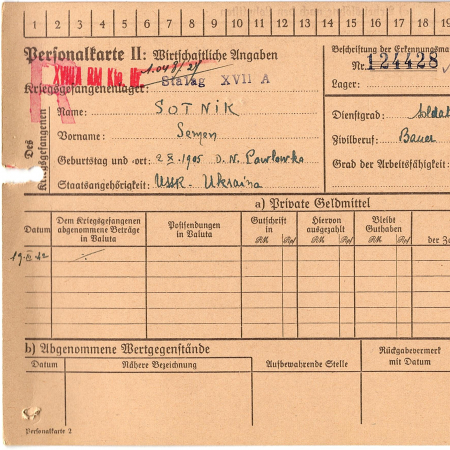 1 2 3 4 5 6 7 8 9 10 11 12 13 14 15 16 17 18 19
Personalkarte II: Wirtschaftliche Angaben
Beschriftung der Erkennungsma
Nr. 124428
Kriegsgefangenenlager: Stalag XVII A
Lager:
Des Kriegsgefangenen
Name: SOTNIK
Vorname: Semen
Geburtstag und -ort: 2 X. 1905 D. N. Pawlowka
Staatsangehörigkeit: USSR. Ukraina
Dienstgrad: Soldat
Zivilberuf: Bauer
Grad der Arbeitsfähigkeit:
a) Private Geldmittel
Datum
Dem Kriegsgefangenen abgenommene Beträge in Valuta
Postsendungen in Valuta
Gutschrift in
RM Rpf
Hiervon ausgezahlt
RM Rpf
Bleibt Guthaben
RM Rpf
der Z
b) Abgenommene Wertgegenstände
Datum
Nähere Bezeichnung
Aufbewahrende Stelle
Rückgabevermerk mit Datum
Personalkarte 2